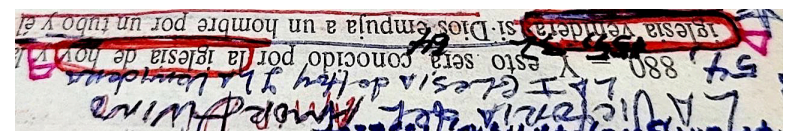 LA VICTORIA DEL AMOR DIVINO
LA IGLESIA de Hoy Y LA Venidera
54,
880 Y esto será conocido por la iglesia de hoy y l
iglesia venidera; si Dios empuja a un hombre por un tubo y el